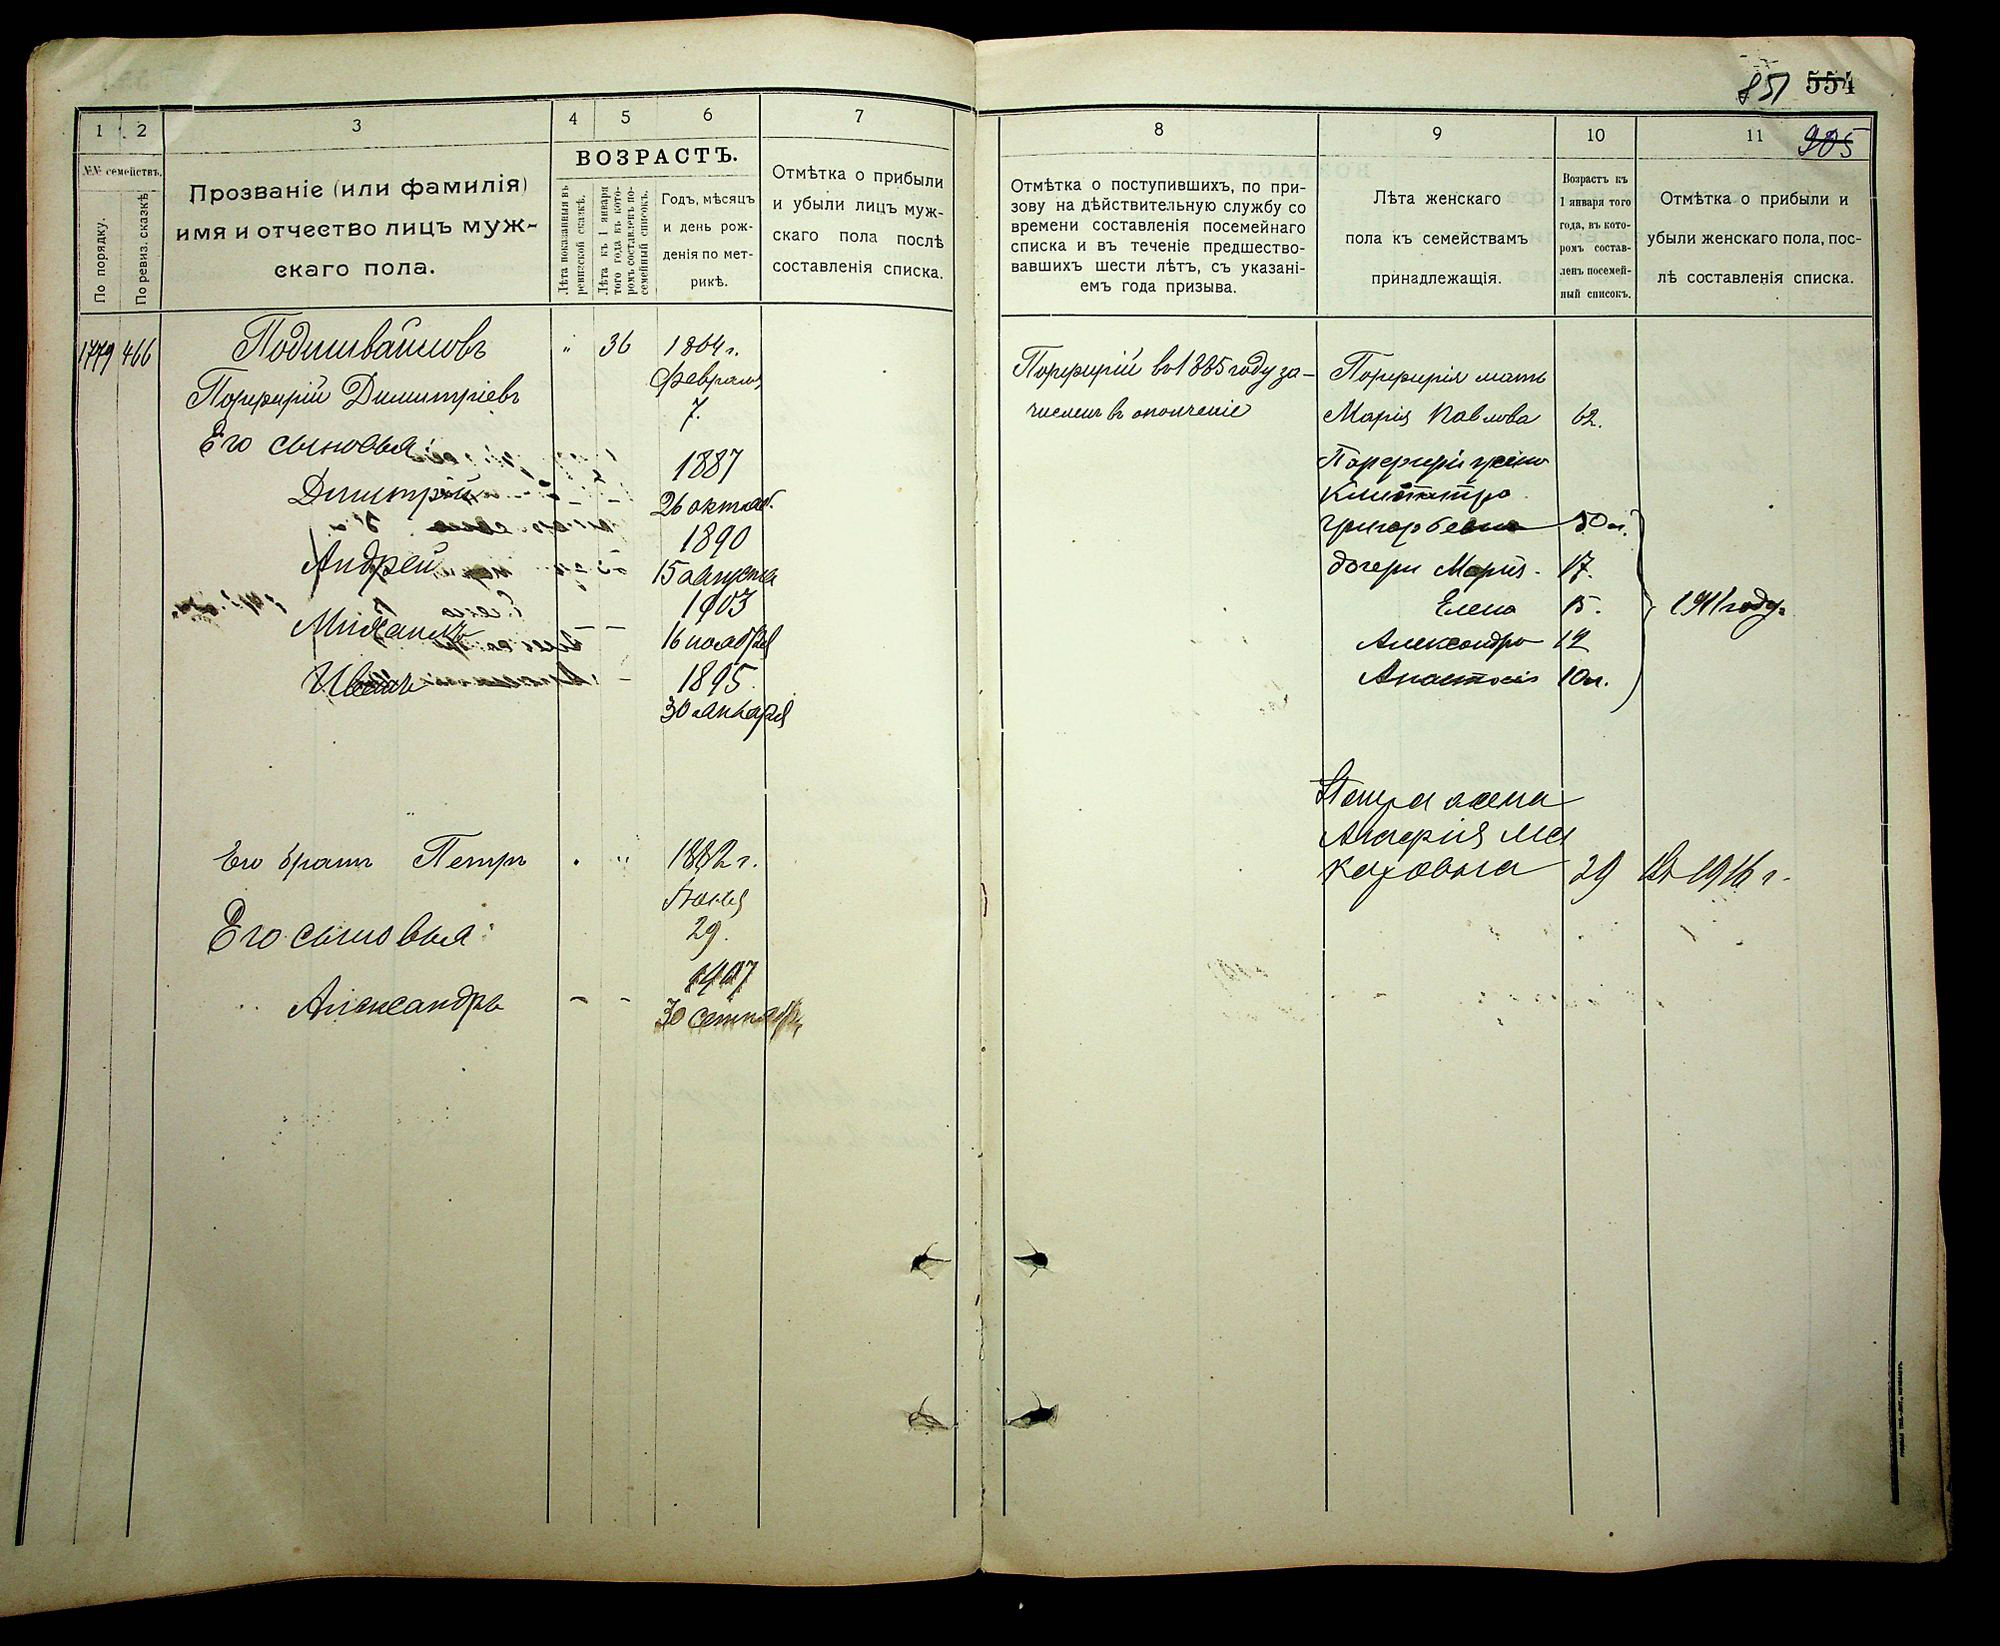 851 554
905
1 2 3 4 5 6 7
№№ семействъ.
По порядку.
По ревиз. сказкѣ
Прозваніе (или фамилія)
имя и отчество лицъ муж-
скаго пола.
ВОЗРАСТЪ.
Лѣта показанныя въ
ревизской сказкѣ.
Лѣта къ 1 января
того года въ кото-
ромъ составленъ по-
семейный списокъ.
Годъ, мѣсяцъ
и день рож-
денія по мет-
рикѣ.
Отмѣтка о прибыли
и убыли лицъ муж-
скаго пола послѣ
составленія списка.
1779 466 " 36 1864 г.
Порфирій Димитріевъ
февраля
7.
Его сыновья
1887
Димитрій
26 октяб.
1890
Андрей 15 августа
1903
Михаилъ — — 16 ноября
Иванъ - 1895
30 января
Его братъ Петръ . " 1882 г.
29.
Его сыновья
1907
Александръ - - 30 сентября
8 9 10 11
Отмѣтка о поступившихъ, по при-
зову на дѣйствительную службу со
времени составленія посемейнаго
списка и въ теченіе предшество-
вавшихъ шести лѣтъ, съ указані-
емъ года призыва.
Лѣта женскаго
пола къ семействамъ
принадлежащія.
Возрастъ къ
1 января того
года, въ кото-
ромъ состав-
ленъ посемей-
ный списокъ.
Отмѣтка о прибыли и
убыли женскаго пола, пос-
лѣ составленія списка.
Порфирій въ 1885 году за-
численъ въ ополченіе
Порфирія мать
Марія Павлова 62.
Порфирія жена
Клеопатра
Григорьевна 50 л.
дочери Марія - 17.
Елена 15.
Александра 12
Анастасія 10 л.
1911 году
Петра жена
Агафія Ма
каровна 29 Въ 1916 г.